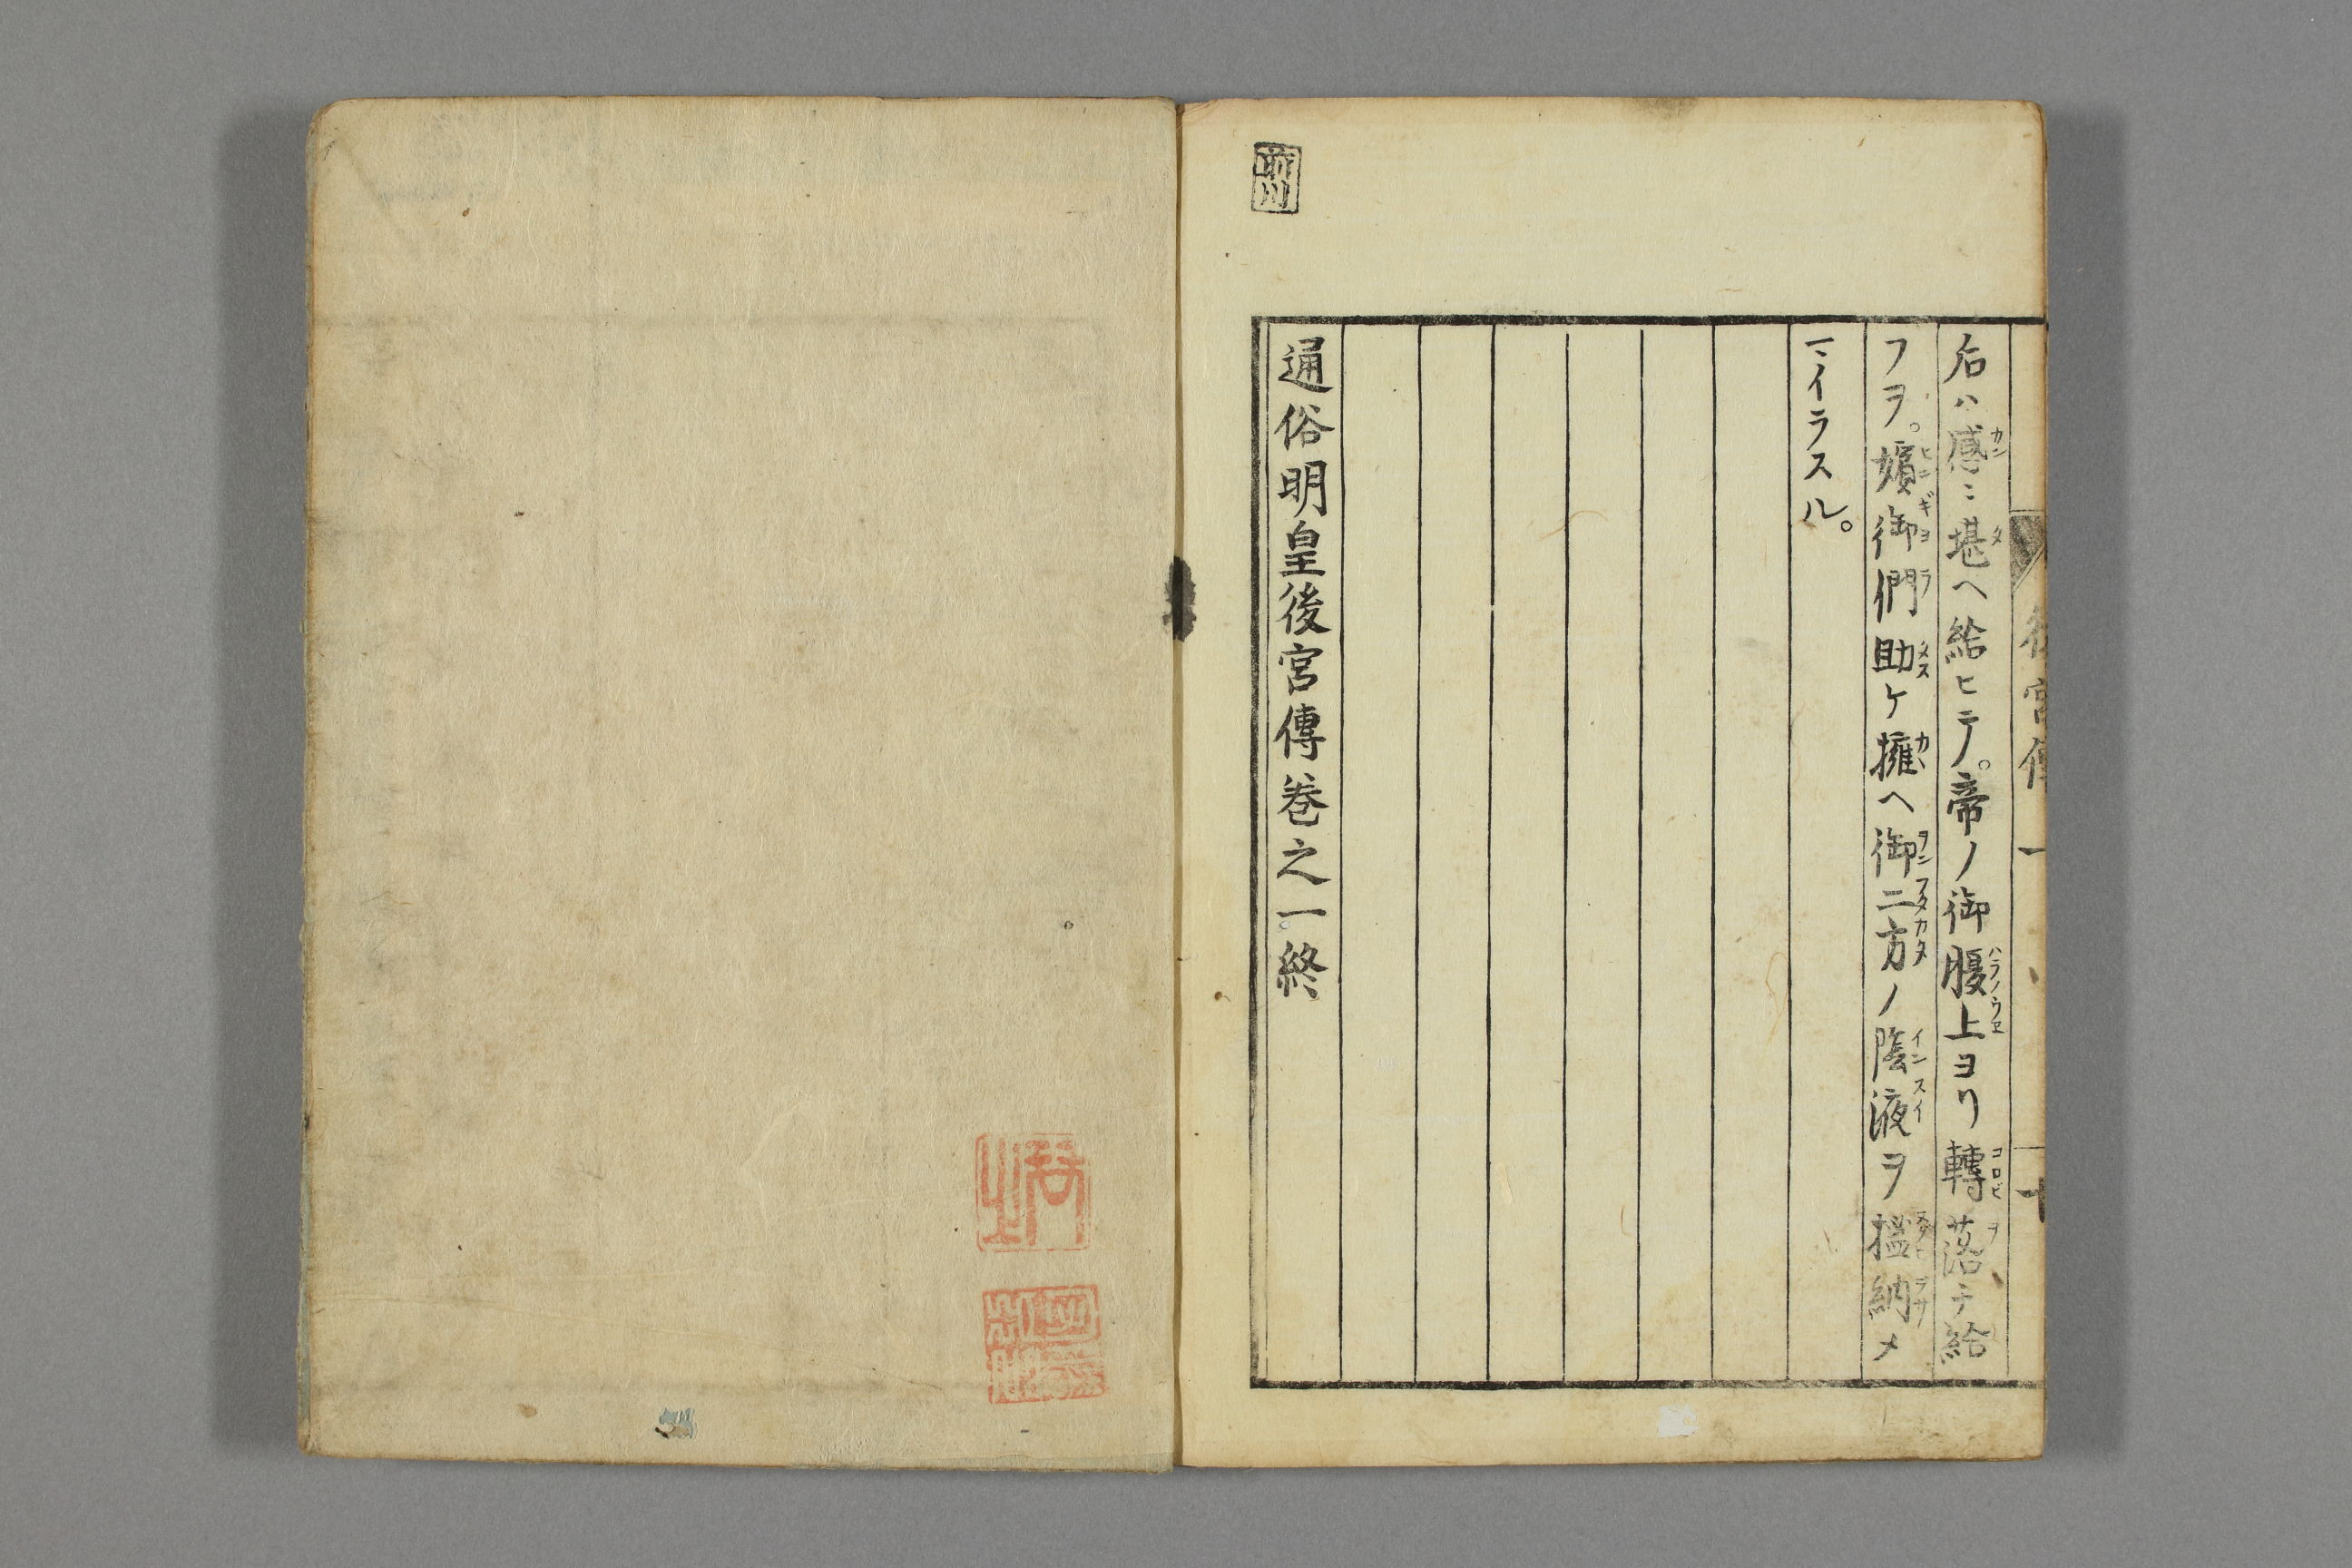 后ハ感ニ堪ヘ給ヒテ。帝ノ御腹上ヨリ轉落チ給
フヲ。嬪御們助ケ擁ヘ御二方ノ陰液ヲ搵納メ
マイラスル。
通俗明皇後宮傳巻之一終
前川